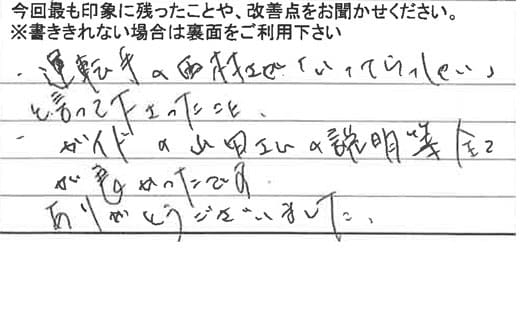 今回最も印象に残ったことや、改善点をお聞かせください。
※書ききれない場合は裏面をご利用下さい
・運転手の西村さんが「いってらっしゃい」
と言って下さったこと、
・ガイドの山田さんの説明等全て
が良かったです。
ありがとうございました。